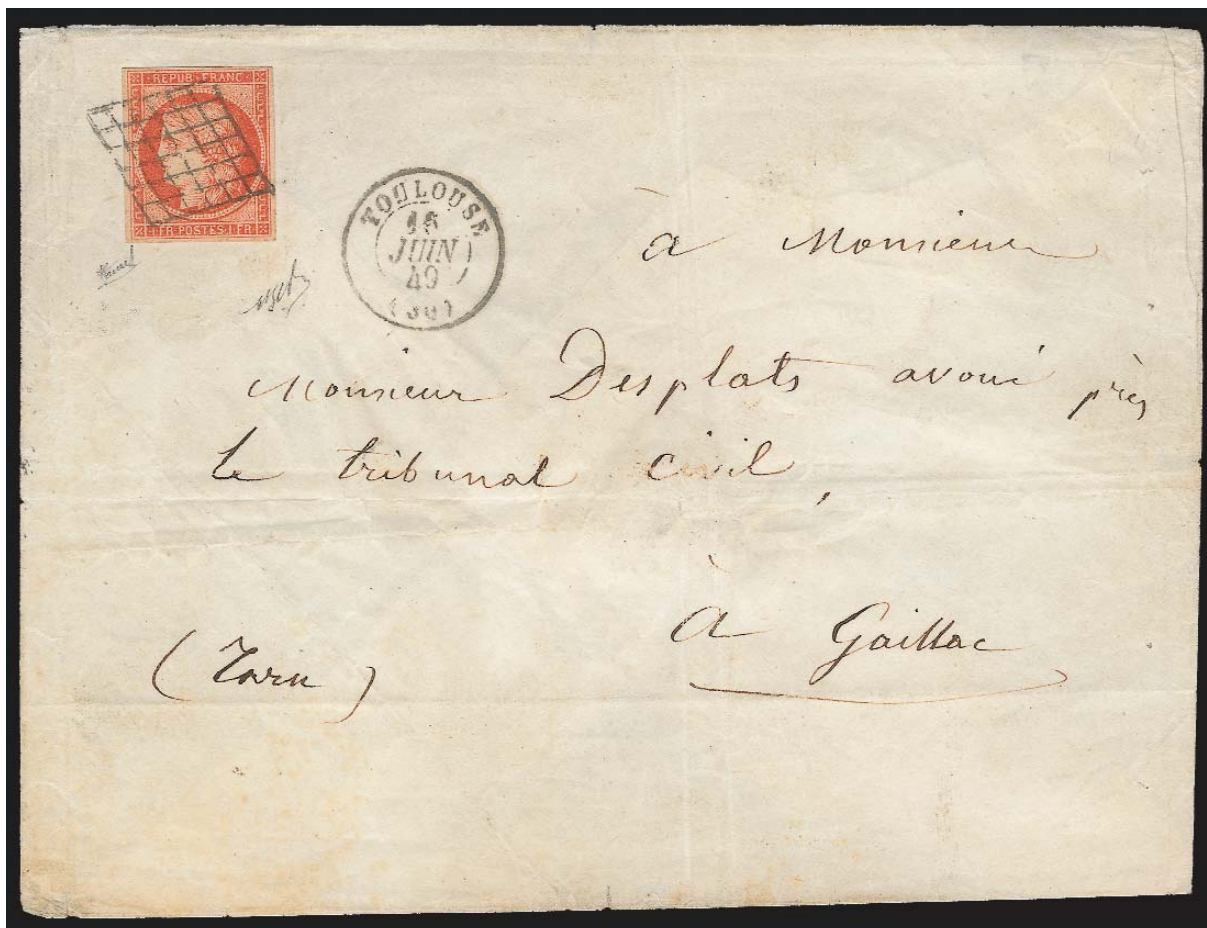 REPUB·FRANC·
1·FR·POSTES·1·FR
TOULOUSE
JUIN
49
(30)
à Monsieur
Monsieur Desplats avoué près
le tribunal civil,
à Gaillac
(Tarn)